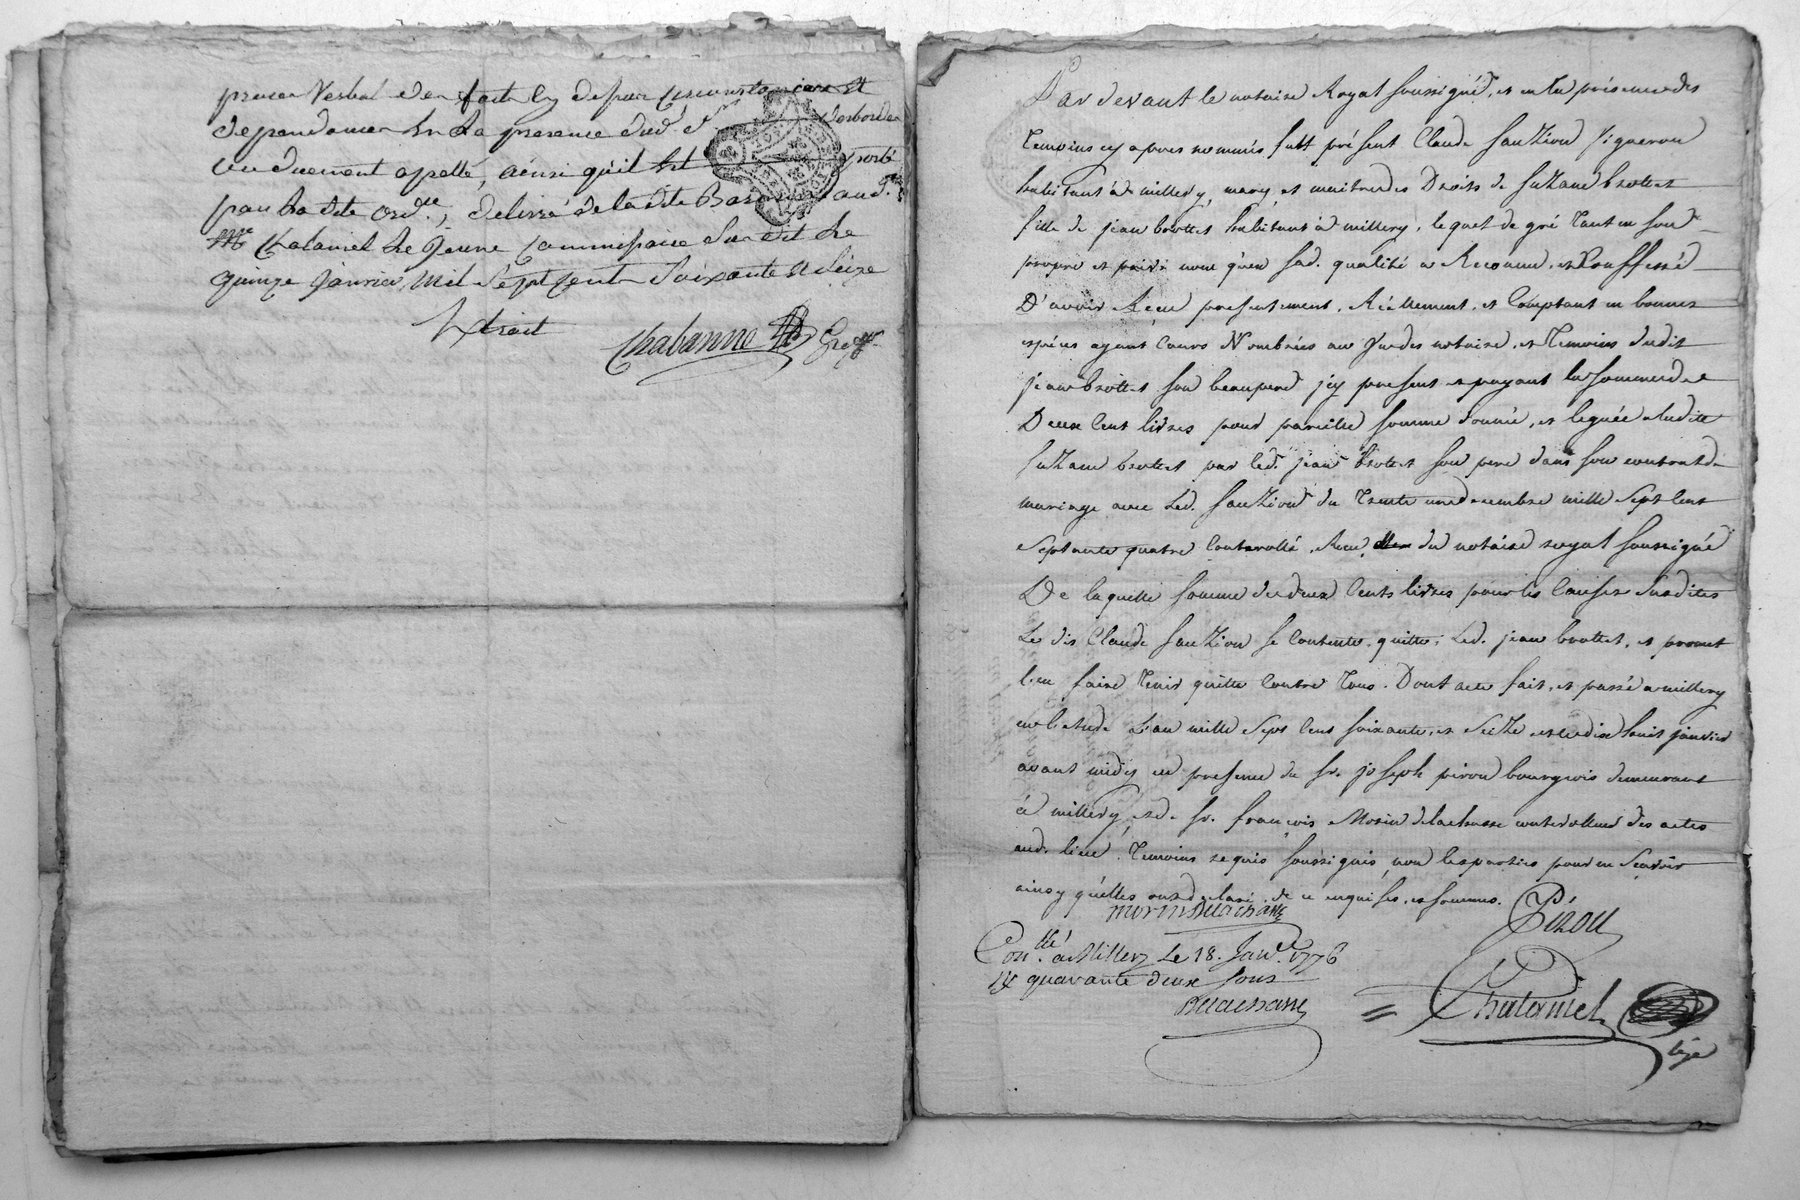 proces Verbal de fait ly de ses circonstances et
dependances en la presence dud. Sr
ou duement apellé, ainsi qu'il est porté
par la dite ordce, delivré de la dite aud.
Me Chalamel le Jeune Commissaire Sus dit le
quinze Janvier, mil Sept Cent Soixante et Seize
Extrait
Chabanne Greff.
Par devant le notaire Royal soussigné, et en la présence des
temoins cy apres nommés futt présent Claude Sauzion Vigneron
habitant à millery, mary, et maitre des Droits de Suzane brottet
fille de jean brottet habitant à millery, lequel de gré tant en son
propre et privé nom qu'en sad. qualité a Reconnu, et Conffessé
D'avoir Reçu presentement, Réellement, et Comptant en bonnes
espéces ayant Cours Nombrées au Vu des notaire, et temoins dudit
jean brottet son beaupere jcy present et payant la somme de
Deux Cent livres pour pareille somme donnée, et leguée a ladite
Suzane brottet par led. jean brottet son pere dans son contrat de
mariage avec Led. Sauzion du trente un decembre mille Sept Cent
Septante quatre Controllé, Recu du notaire royal soussigné
De laquelle somme de deux Cents livres pour les Causes Susdites
Le dit Claude Sauzion se Contente, quitte, Led. jean brottet, et promet
l'en faire tenir quitte Contre tous. Dont acte fait, et passé a millery
en l'etude L'an mille Sept Cent soixante, et Seize et le dix huit janvier
avant midy en presence de sr. joseph pirou bourgeois demeurant
à millery, et de sr. françois Morin delachasse controlleur des actes
aud. lieu temoins requis soussignés, non les parties pour ne Scavoir
ainsy qu'elles ont declaré, de ce enquises, et sommés.
morin Delachasse
Pirou
Conllé à Millery Le 18. Janv. 1776
Rx quarante deux Sous
Delachasse
Chalamel